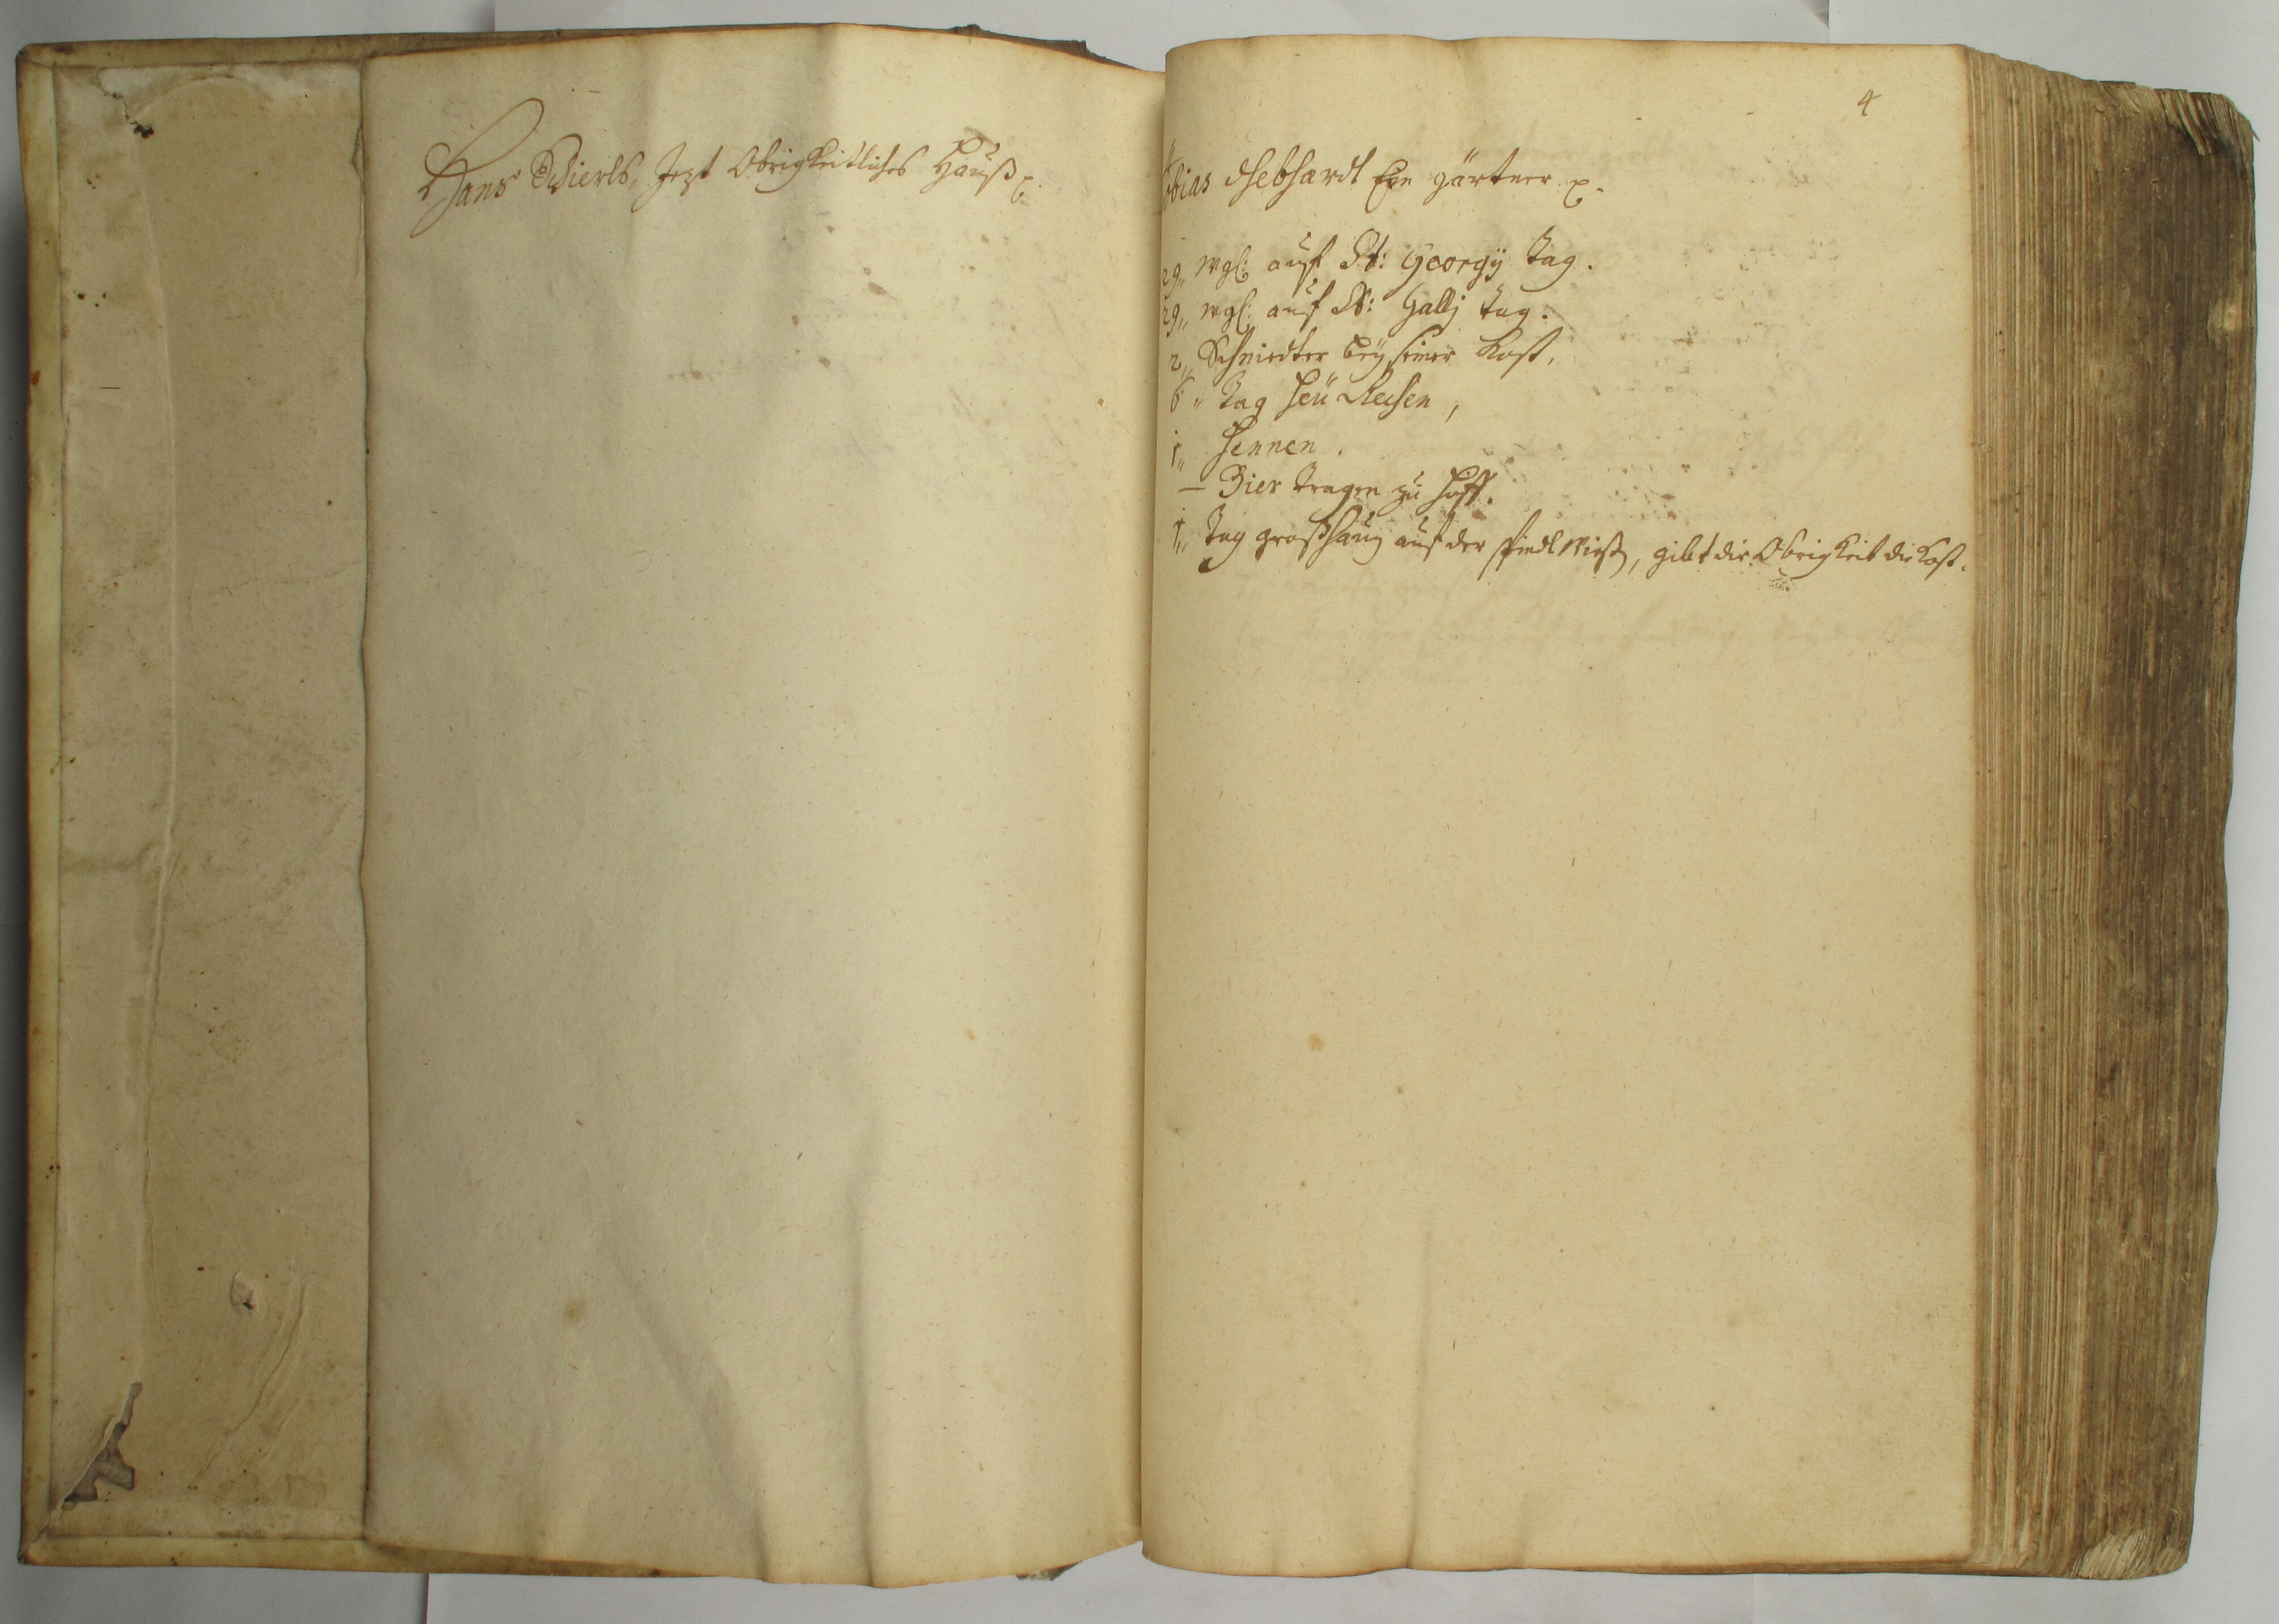 Hans Schierls, Jezt Obrigkeitliches Hauß
4
Tobias Gebhardt Ein gärtner
29„ wgl: auf St: Georgÿ Tag.
29„ wgl: auf St: Gallj Tag.
2„ Schniedter beÿ seiner Kost,
6„ Tag heü Rechen,
1„ Hennen.
– Bier tragen zu Hoff.
1„ Tag graßhaun auf der Wieß, gibt die Obrigkeit die Kost.